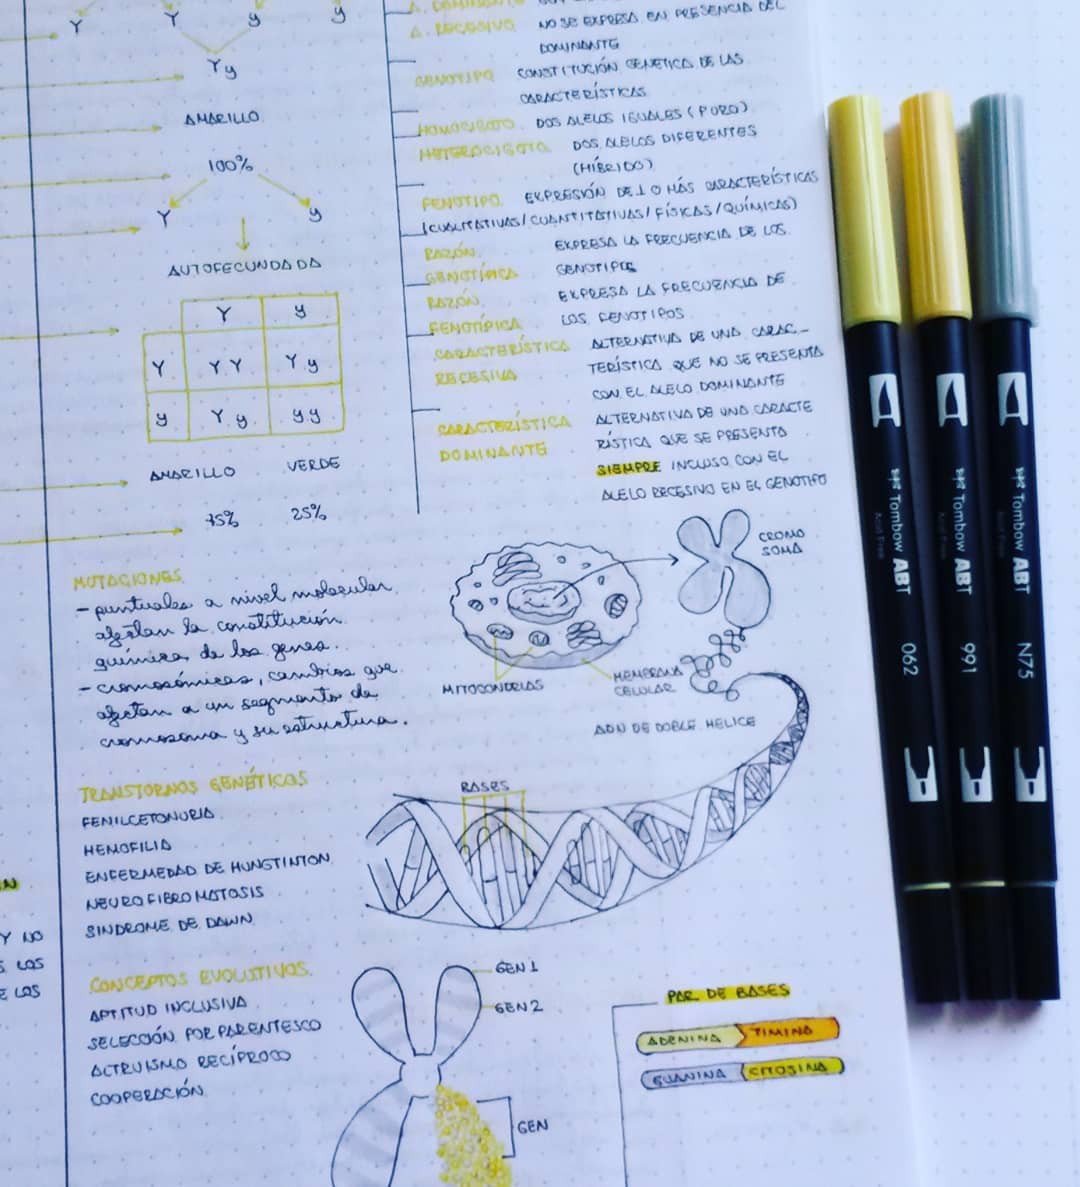 Y Y y y
Yy
AMARILLO
100%
Y y
AUTOFECUNDADA
Y y
Y YY Yy
y Yy yy
AMARILLO VERDE
75% 25%
MUTACIONES
- puntuales a nivel molecular,
afectan la constitución
química de los genes.
- cromosómicas, cambios que
afectan a un segmento de
cromosoma y su estructura.
TRANSTORNOS GENÉTICOS
FENILCETONURIA
HEMOFILIA
ENFERMEDAD DE HUNGTINTON
NEUROFIBROMATOSIS
SINDROME DE DAWN
CONCEPTOS EVOLUTIVOS
APTITUD INCLUSIVA
SELECCIÓN POR PARENTESCO
ALTRUISMO RECÍPROCO
COOPERACIÓN
Y NO
LOS
E LOS
A. RECESIVO NO SE EXPRESA EN PRESENCIA DEL
DOMINANTE
GENOTIPO CONSTITUCIÓN GENETICA DE LAS
CARACTERÍSTICAS
HOMOCIGOTO DOS ALELOS IGUALES (PURO)
HETEROCIGOTO DOS ALELOS DIFERENTES
(HÍBRIDO)
FENOTIPO EXPRESIÓN DE 1 O MÁS CARACTERÍSTICAS
(CUALITATIVAS/CUANTITATIVAS/FÍSICAS/QUÍMICAS)
RAZÓN EXPRESA LA FRECUENCIA DE LOS
GENOTÍPICA GENOTIPOS
RAZÓN EXPRESA LA FRECUENCIA DE
FENOTÍPICA LOS FENOTIPOS
CARACTERÍSTICA ALTERNATIVA DE UNA CARAC-
RECESIVA TERÍSTICA QUE NO SE PRESENTA
CON EL ALELO DOMINANTE
CARACTERÍSTICA ALTERNATIVA DE UNA CARACTE
DOMINANTE RÍSTICA QUE SE PRESENTA
SIEMPRE INCLUSO CON EL
ALELO RECESIVO EN EL GENOTIPO
CROMO
SOMA
MITOCONDRIAS
MEMBRANA
CELULAR
ADN DE DOBLE HELICE
BASES
GEN 1
GEN 2
GEN
PAR DE BASES
ADENINA TIMINA
GUANINA CITOSINA
Tombow ABT 062
Acid Free
Tombow ABT 991
Acid Free
Tombow ABT N75